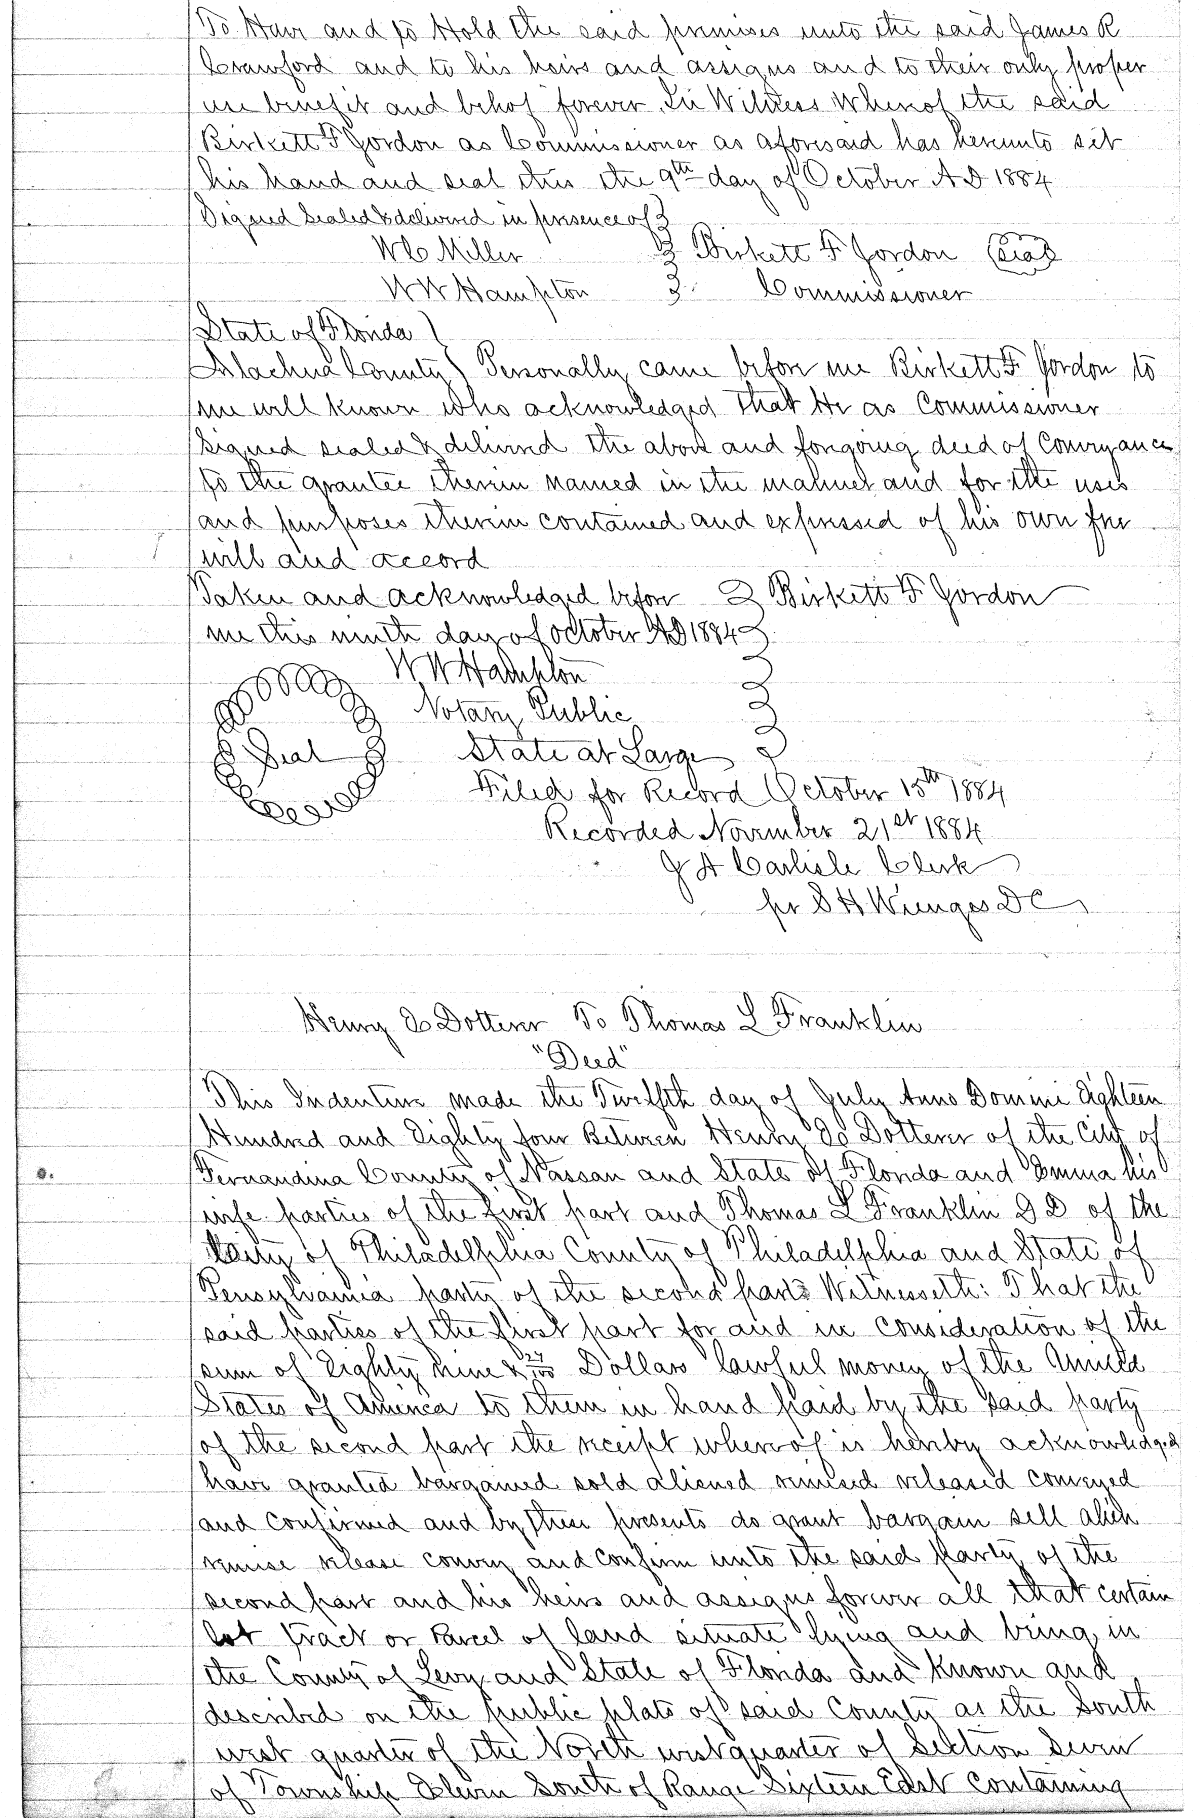 To Have and to Hold the said premises unto the said James R
Crawford and to his heirs and assigns and to their only proper
use benefit and behof forever. In Witness Whereof the said
Birkett F Gordon as Commissioner as aforesaid has hereunto set
his hand and seal this the 9th day of October A D 1884
Signed Sealed & delivered in presence of
W C Miller Birkett F Gordon (Seal)
W W Hampton Commissioner
State of Florida
Alachua County Personally came before me Birkett F Gordon to
me well known who acknowledged that He as Commissioner
signed sealed & delivered the above and foregoing deed of Conveyance
to the grantee therein named in the manner and for the uses
and purposes therein contained and expressed of his own free
will and accord
Taken and acknowledged before Birkett F Gordon
me this ninth day of October AD 1884
W W Hampton
Notary Public
Seal State at Large
Filed for Record October 15th 1884
Recorded November 21st 1884
J A Carlisle Clerk
pr S H Wienges D C
Henry E Dotterer To Thomas L Franklin
"Deed"
This Indenture made the Twelfth day of July Anno Domini Eighteen
Hundred and Eighty four Between Henry E Dotterer of the City of
Fernandina County of Nassau and State of Florida and Emma his
wife parties of the first part and Thomas L Franklin D D of the
City of Philadelphia County of Philadelphia and State of
Pensylvania party of the second part Witnesseth: That the
said parties of the first part for and in consideration of the
sum of Eighty nine & 27/100 Dollars lawful money of the United
States of America to them in hand paid by the said party
of the second part the receipt whereof is hereby acknowledged
have granted bargained sold aliened remised released conveyed
and confirmed and by these presents do grant bargain sell alien
remise release convey and confirm unto the said party of the
second part and his heirs and assigns forever all that certain
lot tract or Parcel of land situate lying and being in
the County of Levy and State of Florida and known and
described on the public plats of said County as the South
west quarter of the North west quarter of Section Seven
of Township Eleven South of Range Sixteen East Containing